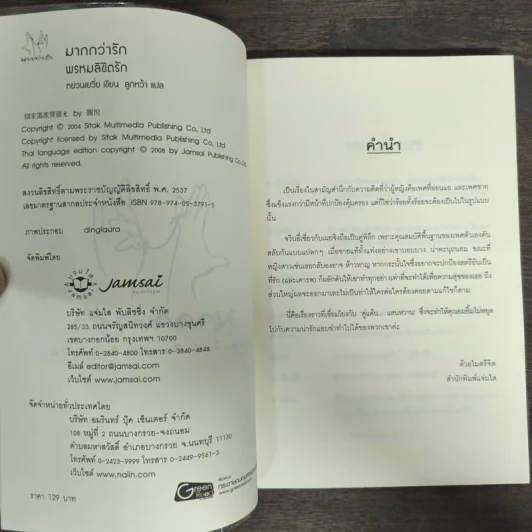 มากกว่ารัก
มากกว่ารัก
พรหมลิขิตรัก
หยวนเยวี่ย เขียน ลูกหว้า แปล
by 圓悅
Copyright © 2004 Sitak Multimedia Publishing Co., Ltd
Copyright licensed by Sitak Multimedia Publishing Co., Ltd
Thai language edition copyright © 2008 by Jamsai Publishing Co., Ltd
All rights reserved.
สงวนลิขสิทธิ์ตามพระราชบัญญัติลิขสิทธิ์ พ.ศ. 2537
เลขมาตรฐานสากลประจำหนังสือ ISBN 978-974-05-3791-5
ภาพประกอบ dinglaura
จัดพิมพ์โดย
แจ่มใส
Jamsai
บริษัท แจ่มใส พับลิชชิ่ง จำกัด
285/33 ถนนจรัญสนิทวงศ์ แขวงบางขุนศรี
เขตบางกอกน้อย กรุงเทพฯ 10700
โทรศัพท์ 0-2840-4800 โทรสาร 0-2840-4848
อีเมล์ editor@jamsai.com
เว็บไซต์ www.jamsai.com
จัดจำหน่ายทั่วประเทศโดย
บริษัท อมรินทร์ บุ๊ค เซ็นเตอร์ จำกัด
108 หมู่ที่ 2 ถนนบางกรวย-จงถนอม
ตำบลมหาสวัสดิ์ อำเภอบางกรวย จ.นนทบุรี 11130
โทรศัพท์ 0-2423-9999 โทรสาร 0-2449-9561-3
เว็บไซต์ www.naiin.com
ราคา 129 บาท
Green Read
คำนำ
เป็นเรื่องในสามัญสำนึกกับความคิดที่ว่าผู้หญิงคือเพศที่อ่อนแอ และเพศชาย
ซึ่งแข็งแรงกว่ามีหน้าที่ปกป้องคุ้มครอง แต่ก็ใช่ว่าร้อยทั้งร้อยจะต้องเป็นไปในรูปแบบ
นั้น
เพราะคุณสมบัติพื้นฐานของเพศตัวเองดัน
สลับกันแบบแปลกๆ เมื่อชายแท้ทั้งแท่งอย่างเขาบอบบาง น่าทะนุถนอม ขณะที่
หญิงสาวเช่นเธอกลับองอาจ ห้าวหาญ
ที่รัก (และเคารพ) ก็ผลักดันให้เขาทำทุกอย่างเท่าที่จะทำได้เพื่อความสุขของเธอ ถึง
ส่วนใหญ่ผลจะออกมาเละไม่เป็นท่าให้ใครต่อใครต้องคอยตามแก้ไขก็ตาม
นี่คือเรื่องราวที่เชื่อมโยงกับ ‘คู่แค้น... แสนหวาน’ ซึ่งจะทำให้คุณอมยิ้มไม่หยุด
ไปกับความน่ารักแอบซ่าทำไปได้ของพวกเขาค่ะ
ด้วยไมตรีจิต
สำนักพิมพ์แจ่มใส